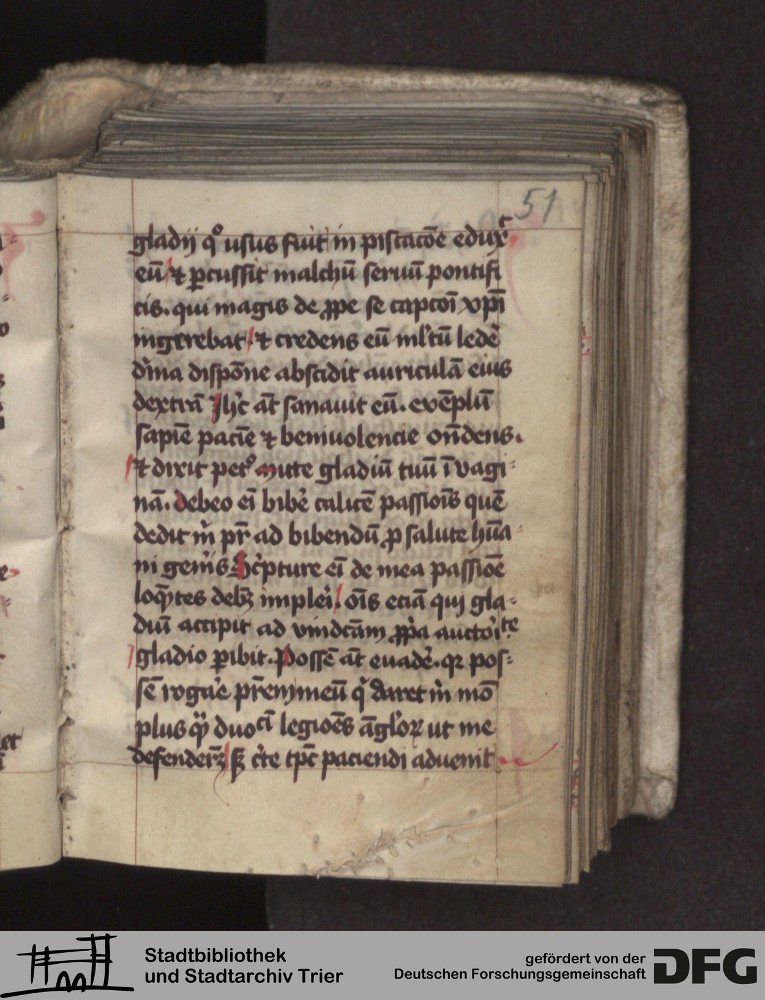 51
gladij qͦ usus fuit in piscacōe edux̾
eū ⁊ ꝑcussit malchū seruū pontifi
cis. qui magis de ꝓpe se capcōī xp̄i
ingerebat ⁊ credens eū ml̾tū lede̾
d̾ina dispōne abscidit auriculā eius
dextrā Jhc̄ āt sanauit eū. exēplū
sapiē paciē ⁊ beniuolencie on̄dens.
⁊ dixit pet᷒ mitte gladiū tuū ī vagi
nā. debeo eī bibe̾ calicē passiōīs quē
dedit m̄ pr̄ ad bibendū ꝓ salute hūa
ni gen̾is Sc̾pture eī de mea passiōe
loq̄ntes debꝫ imple̾i. oīs eciā qui gla
diū accipit ad vindcām ꝓp̾a auctōitͭe
gladio ꝑibit. Possē āt euade̾. qꝛ pos
sē rogar̾e pr̄em meū q̾ daret m̄ mō
plus qͣꝫ duocͥ legiōēs āgl̾oꝝ ut me
defenderꝫ sꝫ c̾te tpc̄ paciendi aduenit
Stadtbibliothek
und Stadtarchiv Trier
gefördert von der
Deutschen Forschungsgemeinschaft
DFG